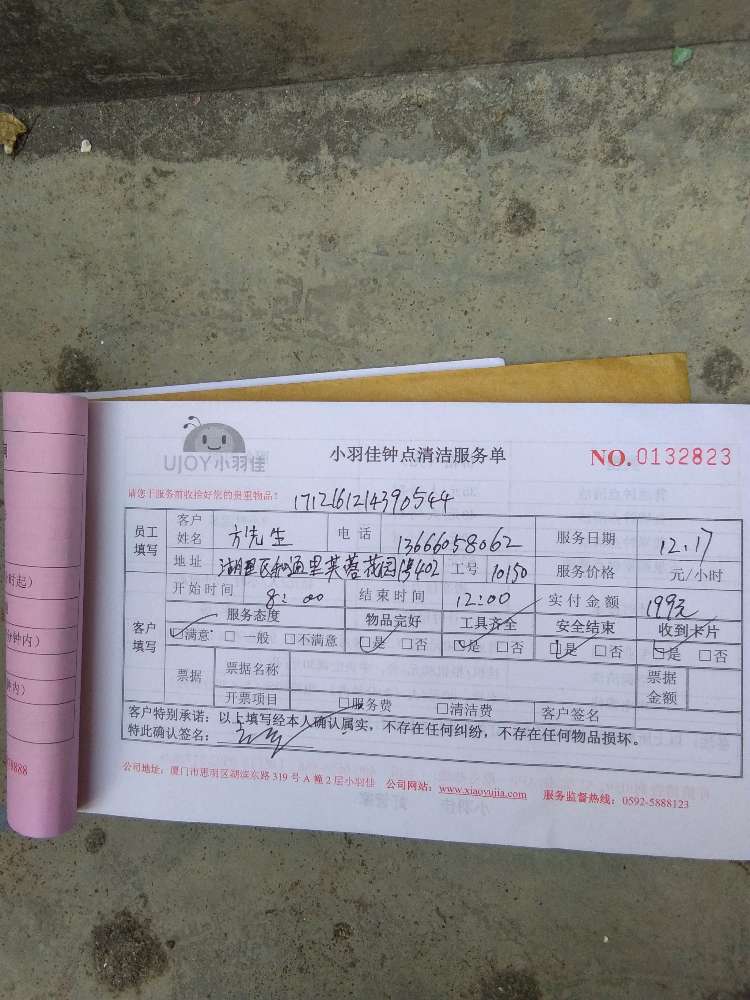 UJOY小羽佳
小羽佳钟点清洁服务单
NO.0132823
请您于服务前收捡好您的贵重物品!
1712161214390544
员工填写 客户姓名 方先生 电话 13666058062 服务日期 12.17
地址 湖里区和通里芙蓉花园 402 工号 10150 服务价格 元/小时
客户填写 开始时间 8:00 结束时间 12:00 实付金额 199元
服务态度 物品完好 工具齐全 安全结束 收到卡片
满意 □ 一般 □不满意 是 □否 是 □否 是 □否 是 □否
票据 票据名称 票据金额
开票项目 □服务费 □清洁费 客户签名
客户特别承诺:以上填写经本人确认属实,不存在任何纠纷,不存在任何物品损坏。
特此确认签名:
公司地址:厦门市思明区湖滨东路319号A幢2层小羽佳 公司网站:www.xiaoyujia.com 服务监督热线:0592-5888123
时起)
分钟内)
内)
8888